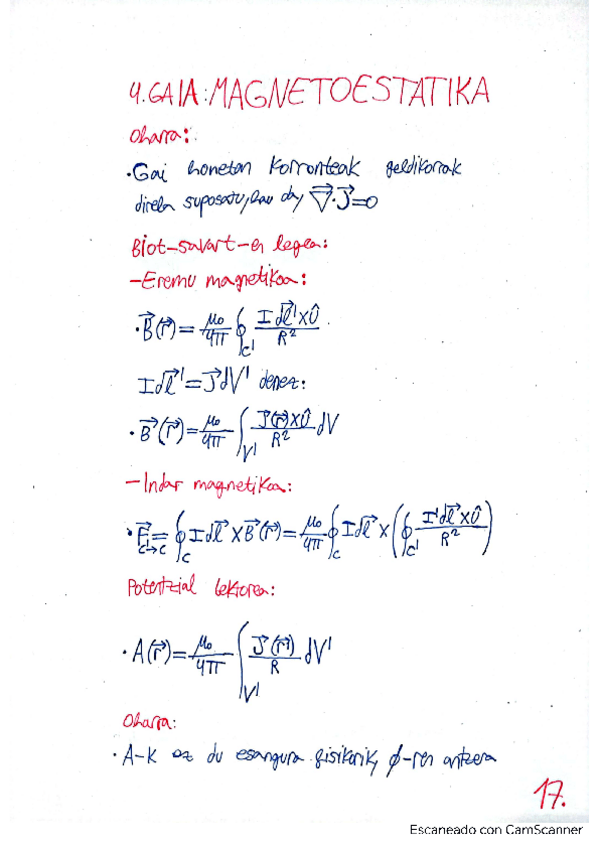 4. GAIA: MAGNETOESTATIKA
Oharra:
·Gai honetan korronteak geldikorrak
direla suposatu, hau da, ∇⃗·J⃗=0
Biot-savart-en legea:
-Eremu magnetikoa:
·B⃗(r⃗)=μ₀/4π ∮_C' I dl⃗'×Û/R²
I dl⃗'=J⃗dV' denez:
·B⃗(r⃗)=μ₀/4π ∫_V' J⃗(r⃗')×Û/R² dV
-Indar magnetikoa:
·F⃗_C'→C=∮_C I dl⃗×B⃗(r⃗)=μ₀/4π ∮_C I dl⃗×(∮_C' I'dl⃗×Û/R²)
Potentzial bektorea:
·A(r⃗)=μ₀/4π ∫_V' J⃗(r⃗')/R dV'
Oharra:
·A-k ez du esangura fisikorik, φ-ren antzera
17.
Escaneado con CamScanner